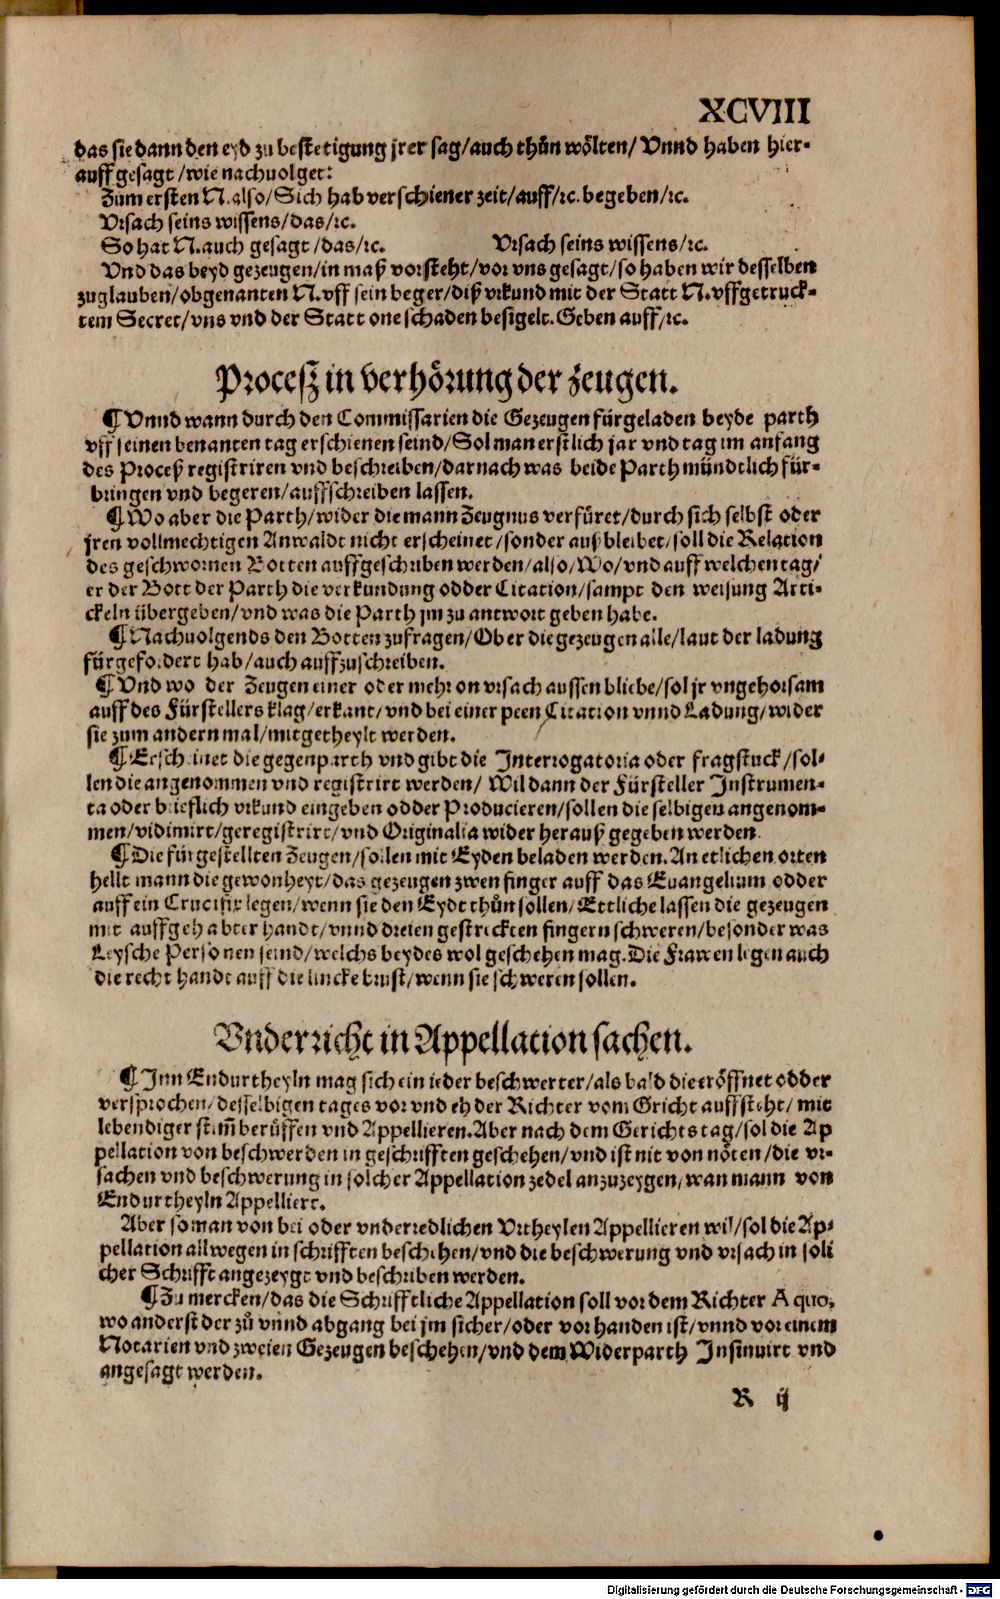 XCVIII
das sie dann den eyd zu bestetigung jrer sag/auch thůn wölten/ Vnnd haben hier-
auff gesagt/wie nachuolget:
Zum ersten N.also/Sich hab verschiener zeit/auff/ꝛc. begeben/ꝛc.
Vrsach seins wissens/das/ꝛc.
So hat N.auch gesagt/das/ꝛc. Vrsach seins wissens/ꝛc.
Vnd das beyd gezeugen/in maß vorsteht/vor vns gesagt/so haben wir desselben
zuglauben/obgenanten N.vff sein beger/diß vrkund mit der Statt N.vffgetruck-
tem Secret/vns vnd der Statt one schaden besigelt.Geben auff/ꝛc.
Procesz in verhörung der zeugen.
¶Vnnd wann durch den Commissarien die Gezeugen fürgeladen beyde parth
vff seinen benanten tag erschienen seind/Sol man erstlich jar vnd tag im anfang
des Proceß registriren vnd beschreiben/darnach was beide Parth mündtlich für-
bringen vnd begeren/auffschreiben lassen.
¶Wo aber die Parth/wider die mann Zeugnus verfüret/durch sich selbst oder
jren vollmechtigen Anwaldt nicht erscheinet/sonder auß bleibet/soll die Relation
des geschwornen Botten auffgeschriben werden/also/Wo/vnd auff welchen tag/
er der Bott der Parth die verkundung odder Citation/sampt den weisung Arti-
ckeln übergeben/vnd was die Parth jm zu antwort geben habe.
¶Nachuolgends den Botten zufragen/Ob er die gezeugen alle/laut der ladung
fürgefordert hab/auch auffzuschreiben.
¶Vnd wo der Zeugen einer oder mehr on vrsach aussen bliebe/sol jr vngehorsam
auff des Fürstellers klag/erkant/vnd bei einer peen Citation vnnd Ladung/wider
sie zum andern mal/mitgetheylt werden.
¶Erscheinet die gegenparth vnd gibt die Interrogatoria oder fragstuck/sol-
len die angenommen vnd registrirt werden/ Wil dann der Fürsteller Instrumen-
ta oder brieflich vrkund eingeben odder Producieren/sollen die selbigen angenom-
men/vidimirt/geregistrirt/vnd Originalia wider herauß gegeben werden.
¶Die fürgestellten Zeugen/sollen mit Eyden beladen werden.An etlichen orten
hellt mann die gewonheyt/das gezeugen zwen finger auff das Euangelium odder
auff ein Crucifix legen/wenn sie den Eydt thůn sollen/Ettliche lassen die gezeugen
mit auffgehabter handt/vnnd dreien gestreckten fingern schweren/besonder was
Leysche Personen seind/welchs beydes wol geschehen mag.Die Frawen legen auch
die recht handt auff die lincke brust/wenn sie schweren sollen.
Vnderricht in Appellation sachen.
¶Inn Endurtheyln mag sich ein ieder beschwerter/als bald die eröffnet odder
versprochen/desselbigen tages vor vnd eh der Richter vom Gricht auffsteht/ mit
lebendiger stim̃ berüffen vnd Appellieren.Aber nach dem Gerichts tag/sol die Ap
pellation von beschwerden in geschrifften geschehen/vnd ist nit von nöten/die vr-
sachen vnd beschwerung in solcher Appellation zedel anzuzeygen/wan mann von
Endurtheyln Appelliert.
Aber so man von bei oder vnderredlichen Vrtheylen Appellieren wil/sol die Ap-
pellation allwegen in schrifften beschehen/vnd die beschwerung vnd vrsach in soli
cher Schrifft angezeygt vnd beschriben werden.
¶Zu mercken/das die Schrifftliche Appellation soll vor dem Richter A quo,
wo anderst der zů vnnd abgang bei jm sicher/oder vorhanden ist/vnnd vor einem
Notarien vnd zweien Gezeugen beschehen/vnd dem Widerparth Insinuirt vnd
angesagt werden.
R ij
Digitalisierung gefördert durch die Deutsche Forschungsgemeinschaft - DFG